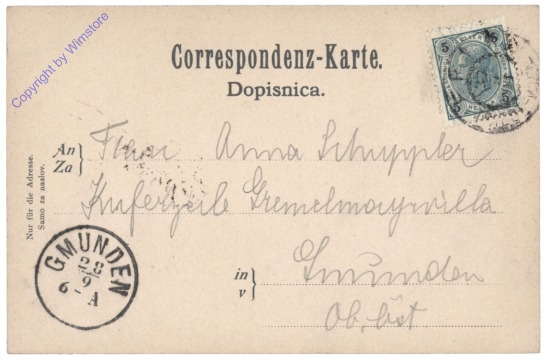 Copyright by Wimstore
Correspondenz-Karte.
Dopisnica.
5
An
Za
Frau Anna Schuppler
Kuferzeile Gremelmayrvilla
in
v
Gmunden
Ob. öst
Nur für die Adresse.
Samo za naslov.
GMUNDEN
28
9
6-A